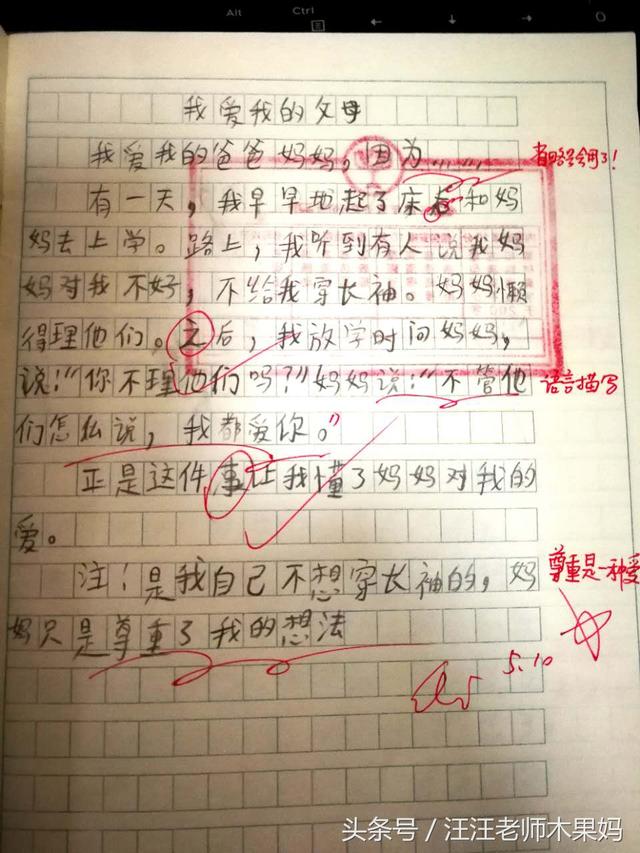 Alt Ctrl
我爱我的父母
我爱我的爸爸妈妈，因为……
省略号会用了！
有一天，我早早地起了床和妈
妈去上学。路上，我听到有人说我妈
妈对我不好，不给我穿长袖。妈妈懒
得理他们。之后，我放学时问妈妈，
说：“你不理他们吗？”妈妈说：“不管他
语言描写
们怎么说，我都爱你。”
正是这件事让我懂了妈妈对我的
爱。
注：是我自己不想穿长袖的，妈
尊重是一种爱
妈只是尊重了我的想法
5.10
头条号／汪汪老师木果妈